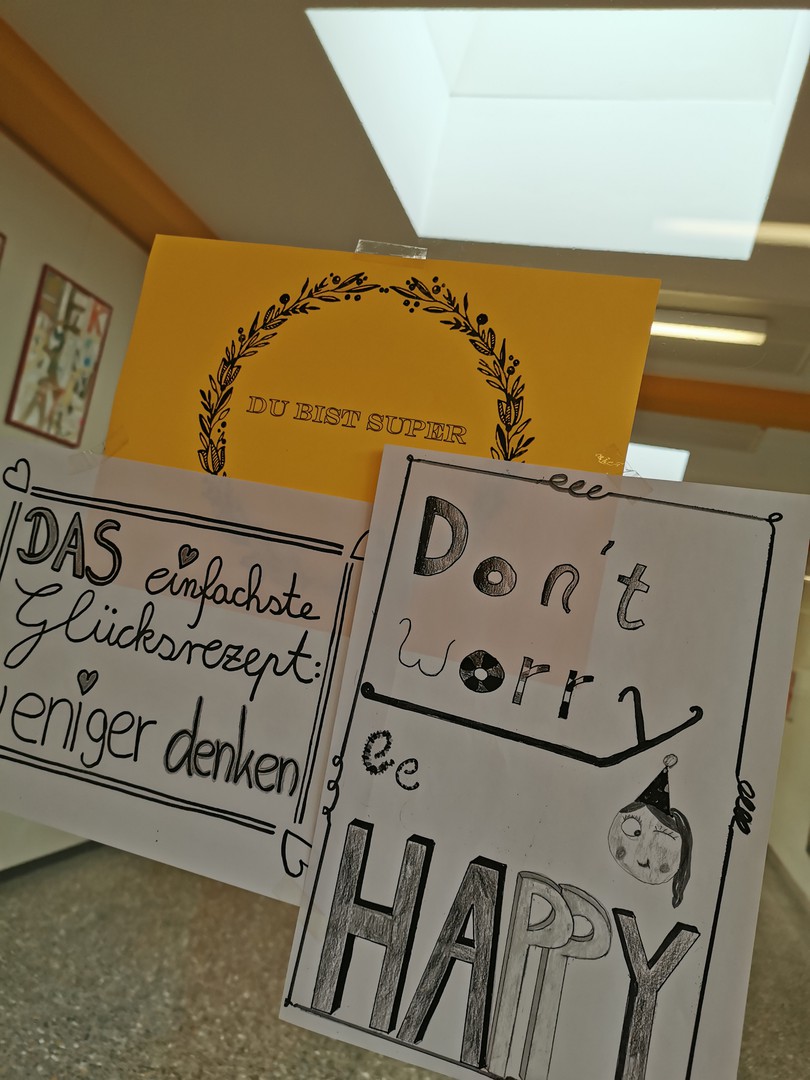 DU BIST SUPER
DAS einfachste
Glücksrezept:
weniger denken
Don't
worry
ee
HAPPY